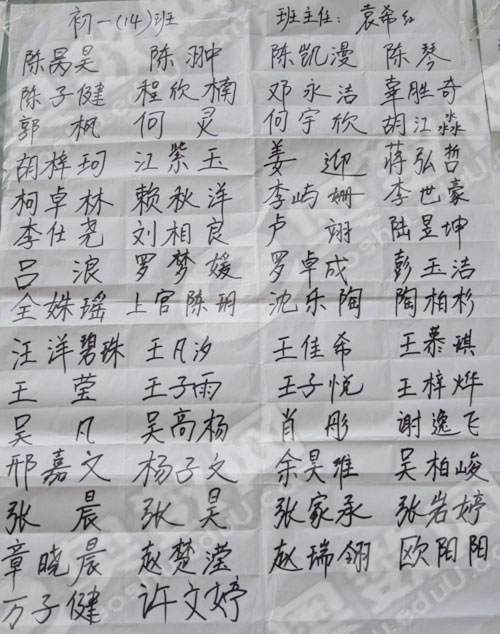 初一(14)班 班主任：袁希红
陈昺昊 陈翀 陈凯漫 陈琴
陈子健 程欣楠 邓永洁 辜胜奇
郭枫 何灵 何宇欣 胡江淼
胡梓珂 江紫玉 姜迎 蒋弘哲
柯卓林 赖秋洋 李屿姗 李世豪
李仕尧 刘相良 卢翊 陆昱坤
吕浪 罗梦媛 罗卓成 彭玉洁
全姝瑶 上官陈玥 沈乐陶 陶柏杉
汪洋碧珠 王凡汐 王佳希 王恭琪
王莹 王子雨 王子悦 王梓烨
吴凡 吴高杨 肖彤 谢逸飞
邢嘉文 杨子文 余昊维 吴柏峻
张晨 张昊 张家承 张岩婷
章晓晨 赵楚滢 赵瑞翎 欧阳阳
万子健 许文婷